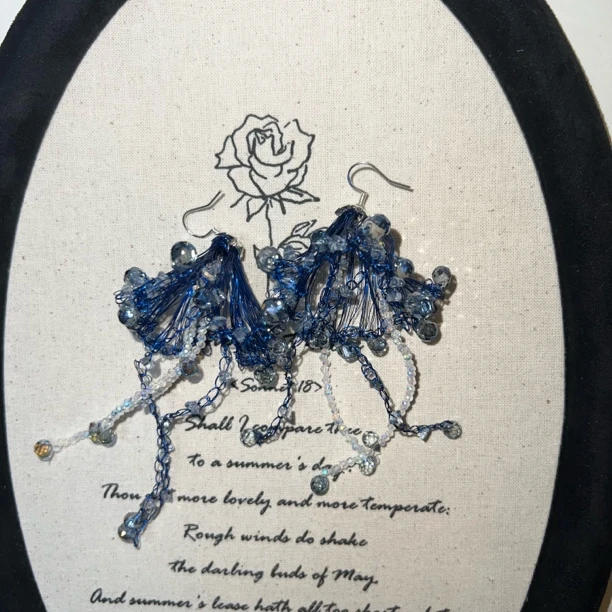 <Sonnet 18>
Shall I compare thee
to a summer's day
Thou art more lovely and more temperate:
Rough winds do shake
the darling buds of May,
And summer's lease hath all too short a date